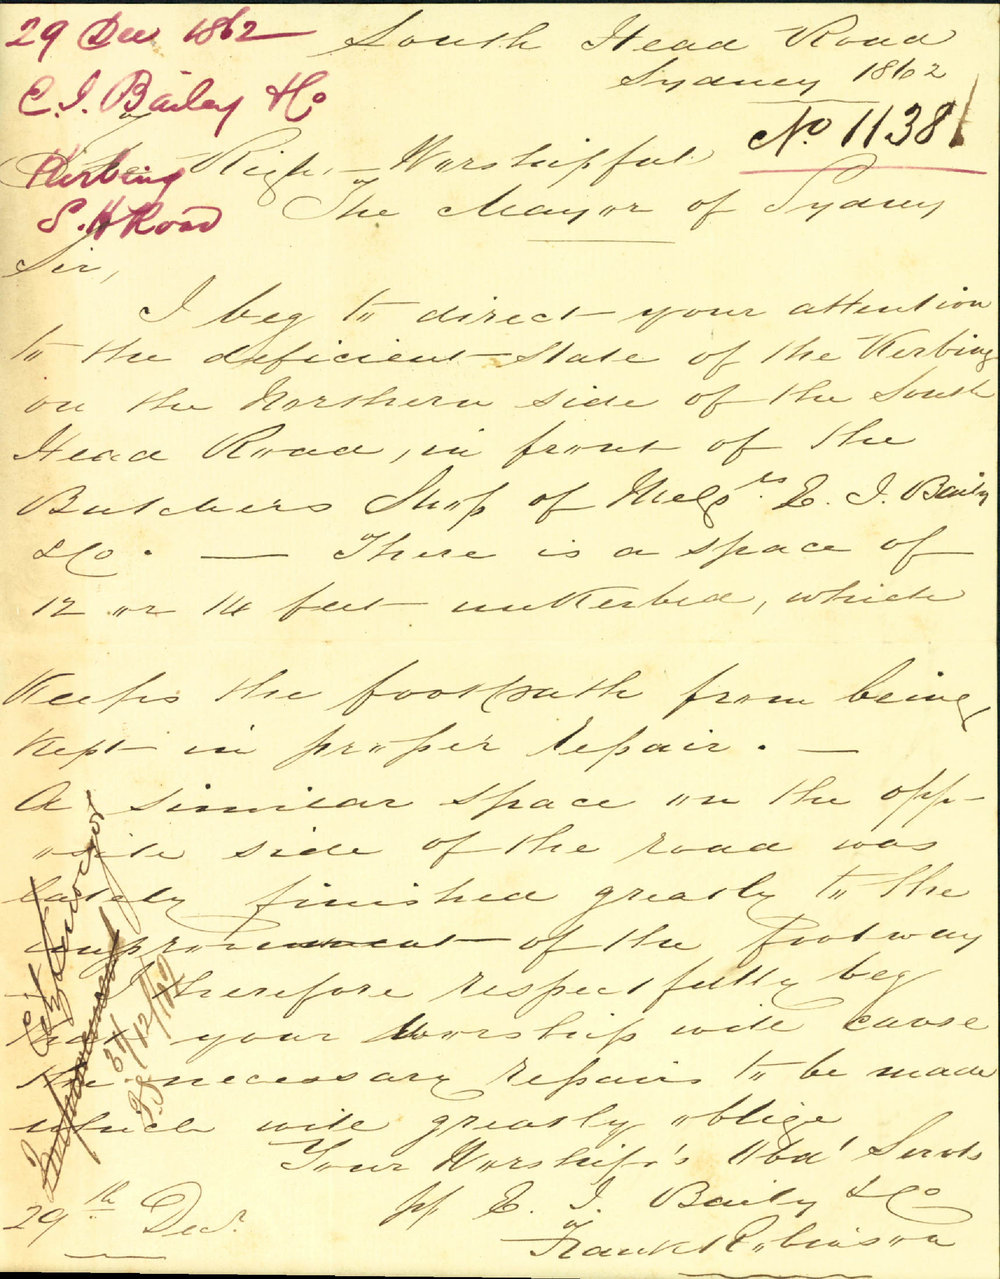 29 Dec 1862
C. I. Bailey & Co
Kerbing
S. H Road
South Head Road
Sydney 1862
No. 1138
Right Worshipful
The Mayor of Sydney
Sir,
I beg to direct your attention
to the deficient state of the Kerbing
on the Northern side of the South
Head Road, in front of the
Butchers Shop of Messrs E. I. Baily
& Co. — There is a space of
12 or 14 feet unkerbed, which
Keeps the footpath from being
Kept in proper repair. —
A similar space on the opp-
osite side of the road was
lately finished greatly to the
improvement of the footway
I therefore respectfully beg
that your Worship will cause
the necessary repairs to be made
which will greatly oblige
Your Worship's Obd' Servts
pp E. I. Baily & Co
Frank Robinson
29th Decr.
City Surveyor
31/12/62